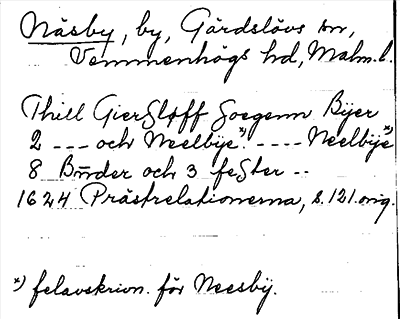 Näsby, by, Gärdslövs sn,
Vemmenhögs hd, Malm.l.
Thill Gierßløff Soegenn Byer
2 --- och Neelbye*). ---- Neelbye*)
8 Bnder och 3 feßter --
1624 Prästrelationerna, s. 121. orig.
*) felavskrivn. för Neesby.